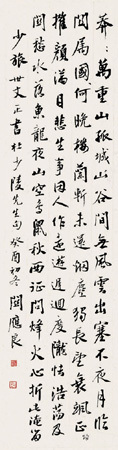 莽〻萬重山孤城山谷間無風雲出塞不夜月臨
關屬國何晚樓蘭斬未還烟塵獨長望衰颯正
摧顏滿目悲生事因人作遠遊遲迴度隴怯浩蕩及
關愁水落魚龍夜山空鳥鼠秋西征問烽火心折此淹留
少旅世丈正書杜少陵先生句癸酉初冬關應良